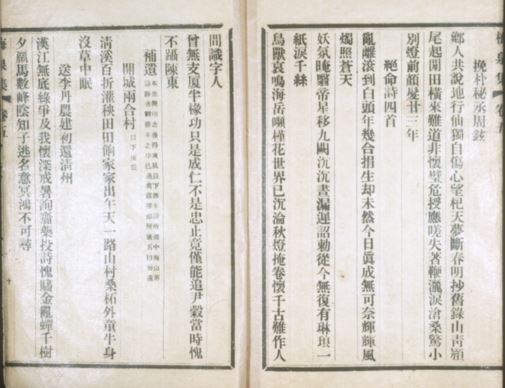 梅泉集 卷五
鄉人共說地行仙獨自傷心望杞天夢斷春明抄舊錄山靑潁
尾起閒田橫來難道非懷璧危授應嗟失著鞭瀧淚滄桑驚小
別燈前髮廿三年
絶命詩四首
亂離滾到白頭年幾合捐生却未然今日眞成無可奈輝輝風
燭照蒼天
妖氛晻翳帝星移九闕沉沉晝漏遲詔勅從今無復有琳琅一
紙淚千絲
鳥獸哀鳴海岳嚬槿花世界已沉淪秋燈掩卷懷千古難作人
間識字人
曾無支廈半椽功只是成仁不是忠止竟僅能追尹穀當時愧
不躡陳東
補遺
開城兩合村
淸溪百折灌秧田田餉家家出午天一路山村桑柘外童牛身
沒草中眠
送李月農建初還淸州
漢江無底綠爭及我懷深投詩愧贐金亂蟬千樹
夕羸馬數峰陰知子逃名意冥鴻不可尋
梅泉集 卷五